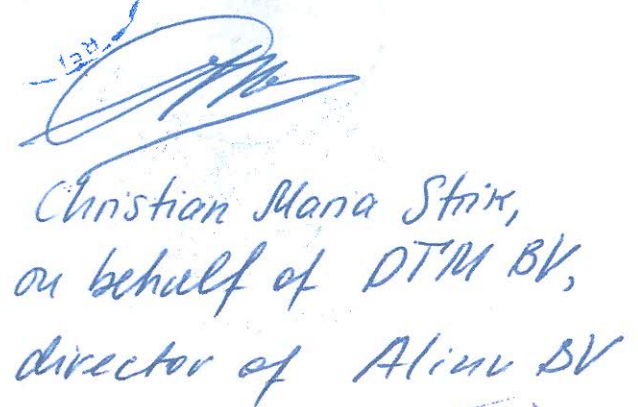 Christian Maria Strik,
on behalf of DTM BV,
director of BV